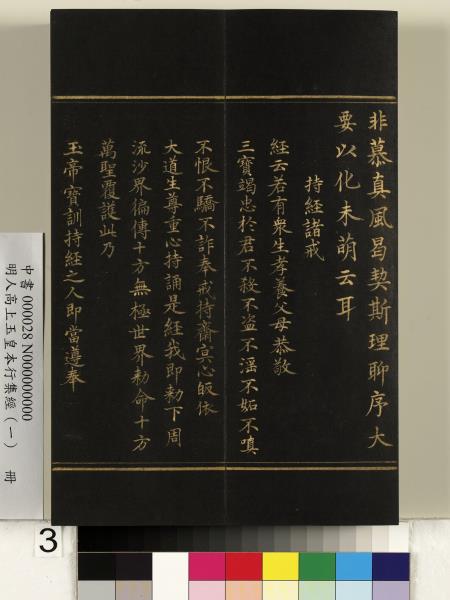 非慕真風曷契斯理聊序大
要以化未萌云耳
持經諸戒
經云若有衆生孝養父母恭敬
三寶竭忠於君不殺不盗不淫不妬不嗔
不恨不驕不詐奉戒持齋冥心皈依
大道生尊重心持誦是經我即勑下周
流沙界徧傳十方無極世界勑命十方
萬聖覆護此乃
玉帝寶訓持經之人即當遵奉
中書 000028 N000000000
明人高上玉皇本行集經（一） 冊
3